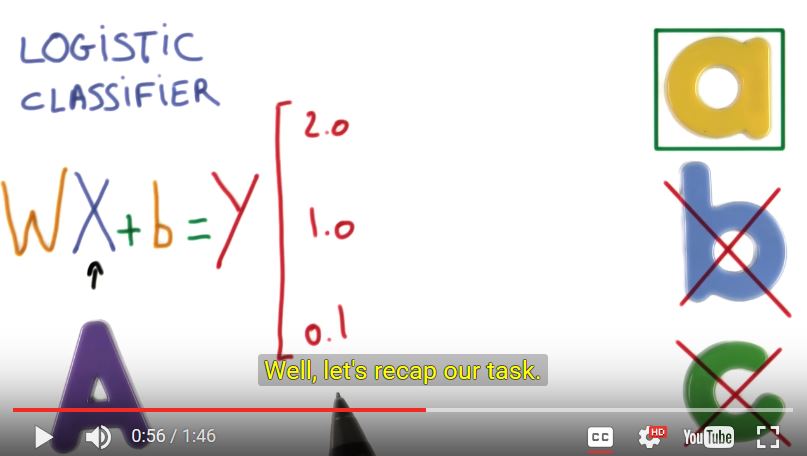 LOGiSTiC
CLASSiFiER
a
2.0
WX+b=Y
1.0
b
0.1
c
A
Well, let's recap our task.
0:56 / 1:46
CC
HD
YouTube